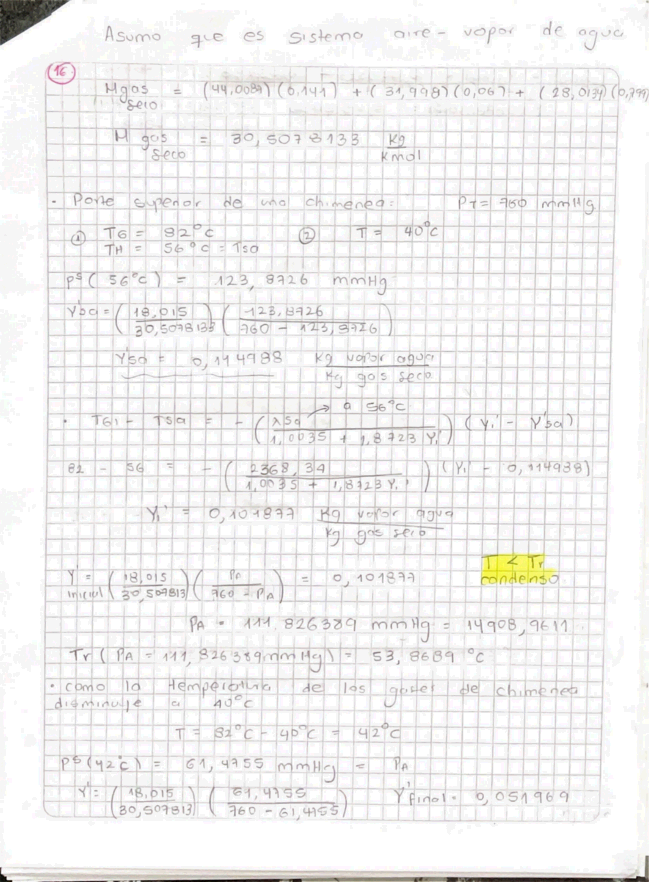 Asumo que es sistema aire - vapor de agua
16.
Mgas seco = (44,0087)(0,141) + (31,998)(0,06) + (28,0134)(0,799)
M gas seco = 30,5078133 kg/kmol
• Parte superior de una chimenea: PT = 760 mmHg
① TG = 82°C ② T = 40°C
TH = 56°C = Tsa
P^s (56°C) = 123,8726 mmHg
Y'sa = (18,015 / 30,5078133) (123,8726 / 760 - 123,8726)
Y'sa = 0,114988 kg vapor agua / kg gas seco
→ a 56°C
• TG1 - Tsa = - (λsa / 1,0035 + 1,8723 Y1') (Y1' - Y'sa)
82 - 56 = - (2368,34 / 1,0035 + 1,8723 Y1') (Y1' - 0,114988)
Y1' = 0,101877 kg vapor agua / kg gas seco
Y' inicial = (18,015 / 30,507813) (PA / 760 - PA) = 0,101877
T < Tr
condensa
PA = 111,826389 mmHg = 14908,9611
Tr (PA = 111,826389 mmHg) = 53,8689 °C
• como la temperatura de los gases de chimenea
disminuye a 40°C
T = 82°C - 40°C = 42°C
P^s (42°C) = 61,4755 mmHg = PA
Y' = (18,015 / 30,507813) (61,4755 / 760 - 61,4755) Y'final = 0,051969